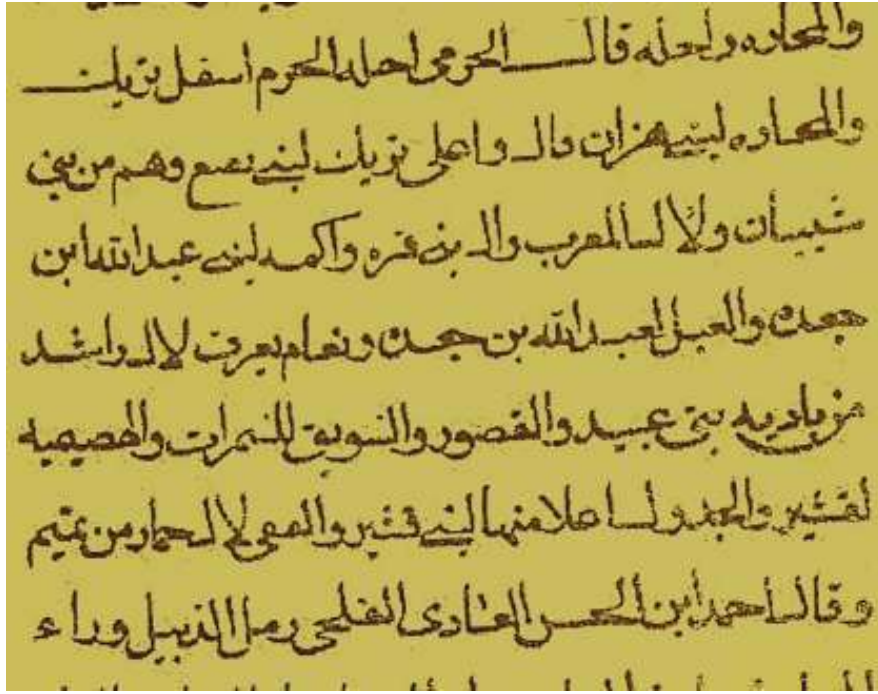 والمحاره ولجعله قال الجرمى احله الجرم اسفل تريك
والمحاره لبنى هزان قال واعلى تريك لبنى نصع وهم من بني
شيبان ولال المعرب وال بنى قره واكمه لبنى عبد الله ابن
جعده والعبل لعبد الله بن جعده ونعام يعرف لال راشد
من باديه بنى عبيد والقصور والسويق للنمرات والهصيصيه
لقشير والجدول اعلا منها لبنى قشير والصعى لال حماد من تميم
وقال أحمد أبن ألحسن العادى الفلجى رمل الدبيل وراء